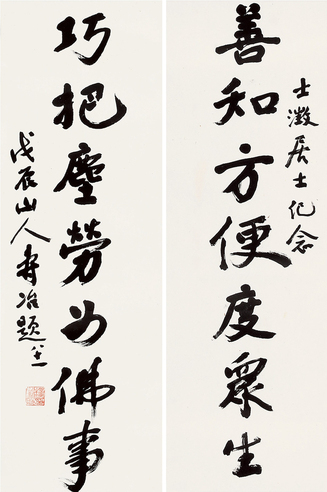 善知方便度眾生
士澂居士紀念
巧把塵勞為佛事
戊辰山人壽冶題八一